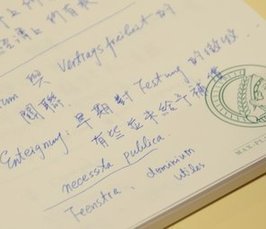 上 所有权
um 與 Vertragsfreiheit 的
關聯.
Enteignung: 早期對 Testung 的徵收.
有些並未給予補償
necessita publica
Teenstra, dominium
utiles
MAX-PL